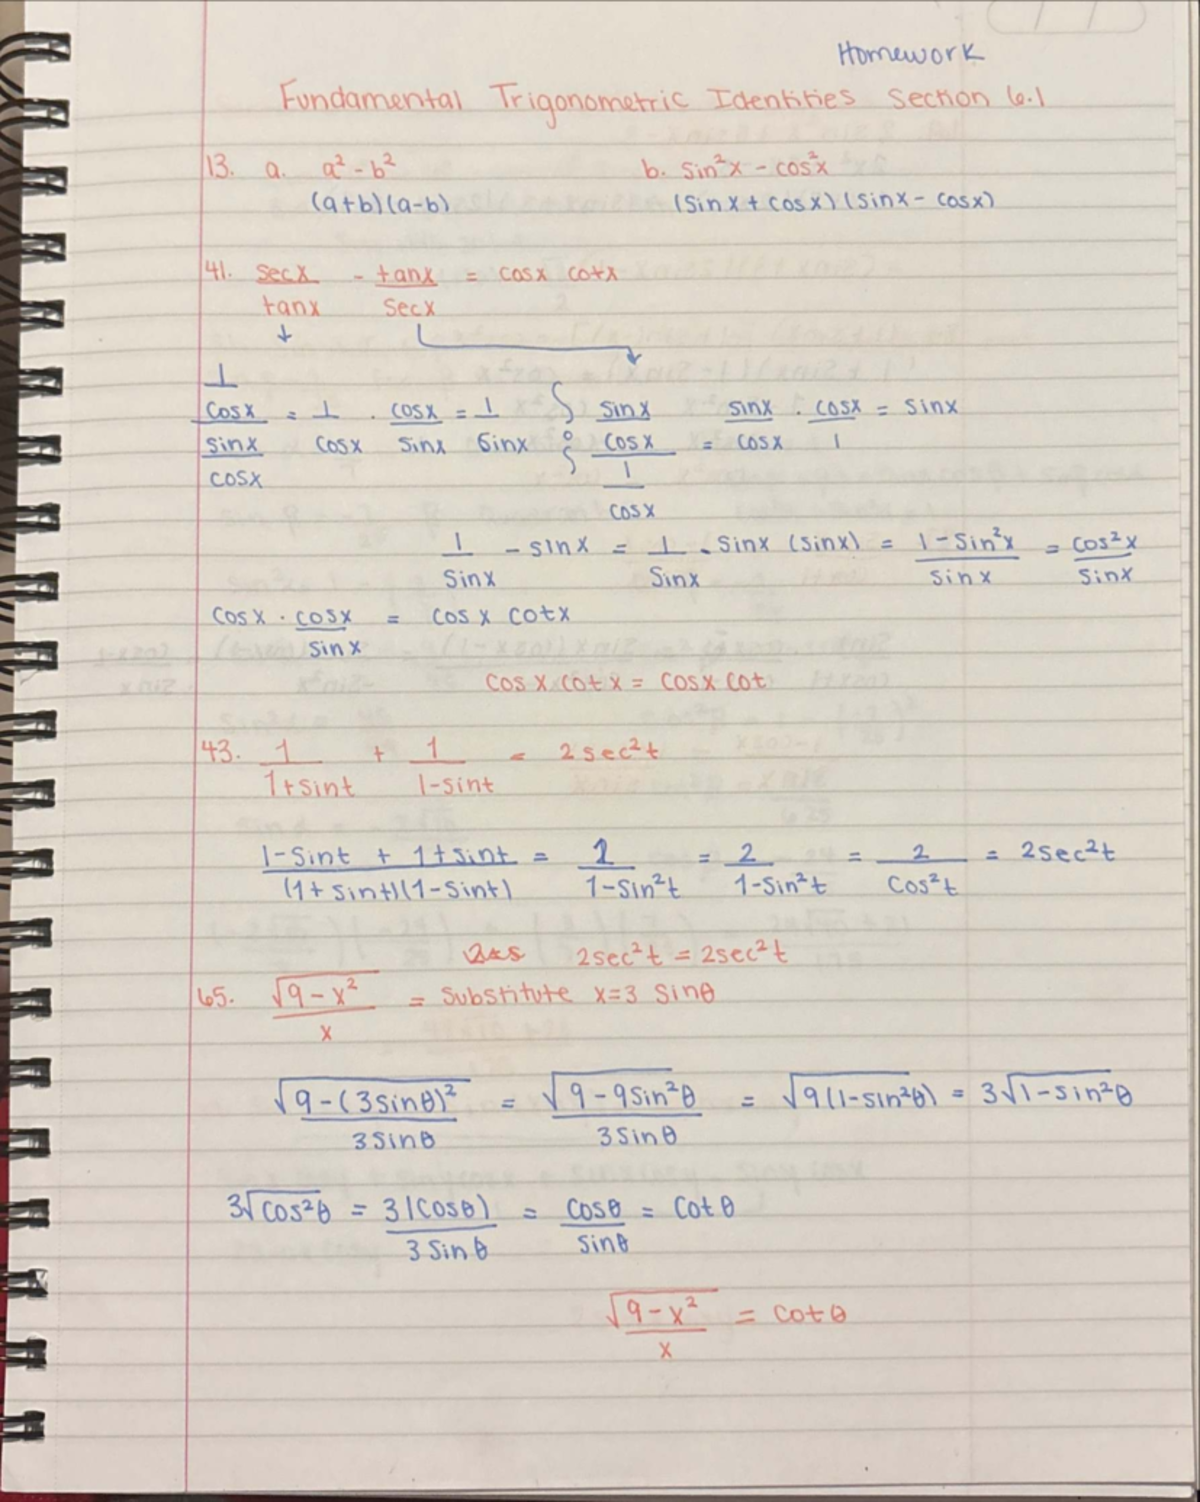 Homework
Fundamental Trigonometric Identities Section 6.1
13. a. a² - b² b. sin²x - cos²x
(a+b)(a-b) (sinx + cosx)(sinx - cosx)
41. secx/tanx - tanx/secx = cosx cotx
(1/cosx)/(sinx/cosx) = 1/cosx · cosx/sinx = 1/sinx ; (sinx/cosx)/(1/cosx) = sinx/cosx · cosx/1 = sinx
1/sinx - sinx = 1/sinx - sinx (sinx) = (1 - sin²x)/sinx = cos²x/sinx
cosx · cosx/sinx = cosx cotx
cosx cotx = cosx cot
43. 1/(1+sint) + 1/(1-sint) = 2sec²t
(1-sint + 1+sint)/((1+sint)(1-sint)) = 2/(1-sin²t) = 2/(1-sin²t) = 2/cos²t = 2sec²t
2sec²t = 2sec²t
65. √(9-x²)/x = substitute x=3 sinθ
√(9-(3sinθ)²)/(3sinθ) = √(9-9sin²θ)/(3sinθ) = √(9(1-sin²θ)) = 3√(1-sin²θ)
3√(cos²θ) = 3(cosθ)/(3sinθ) = cosθ/sinθ = cotθ
√(9-x²)/x = cotθ